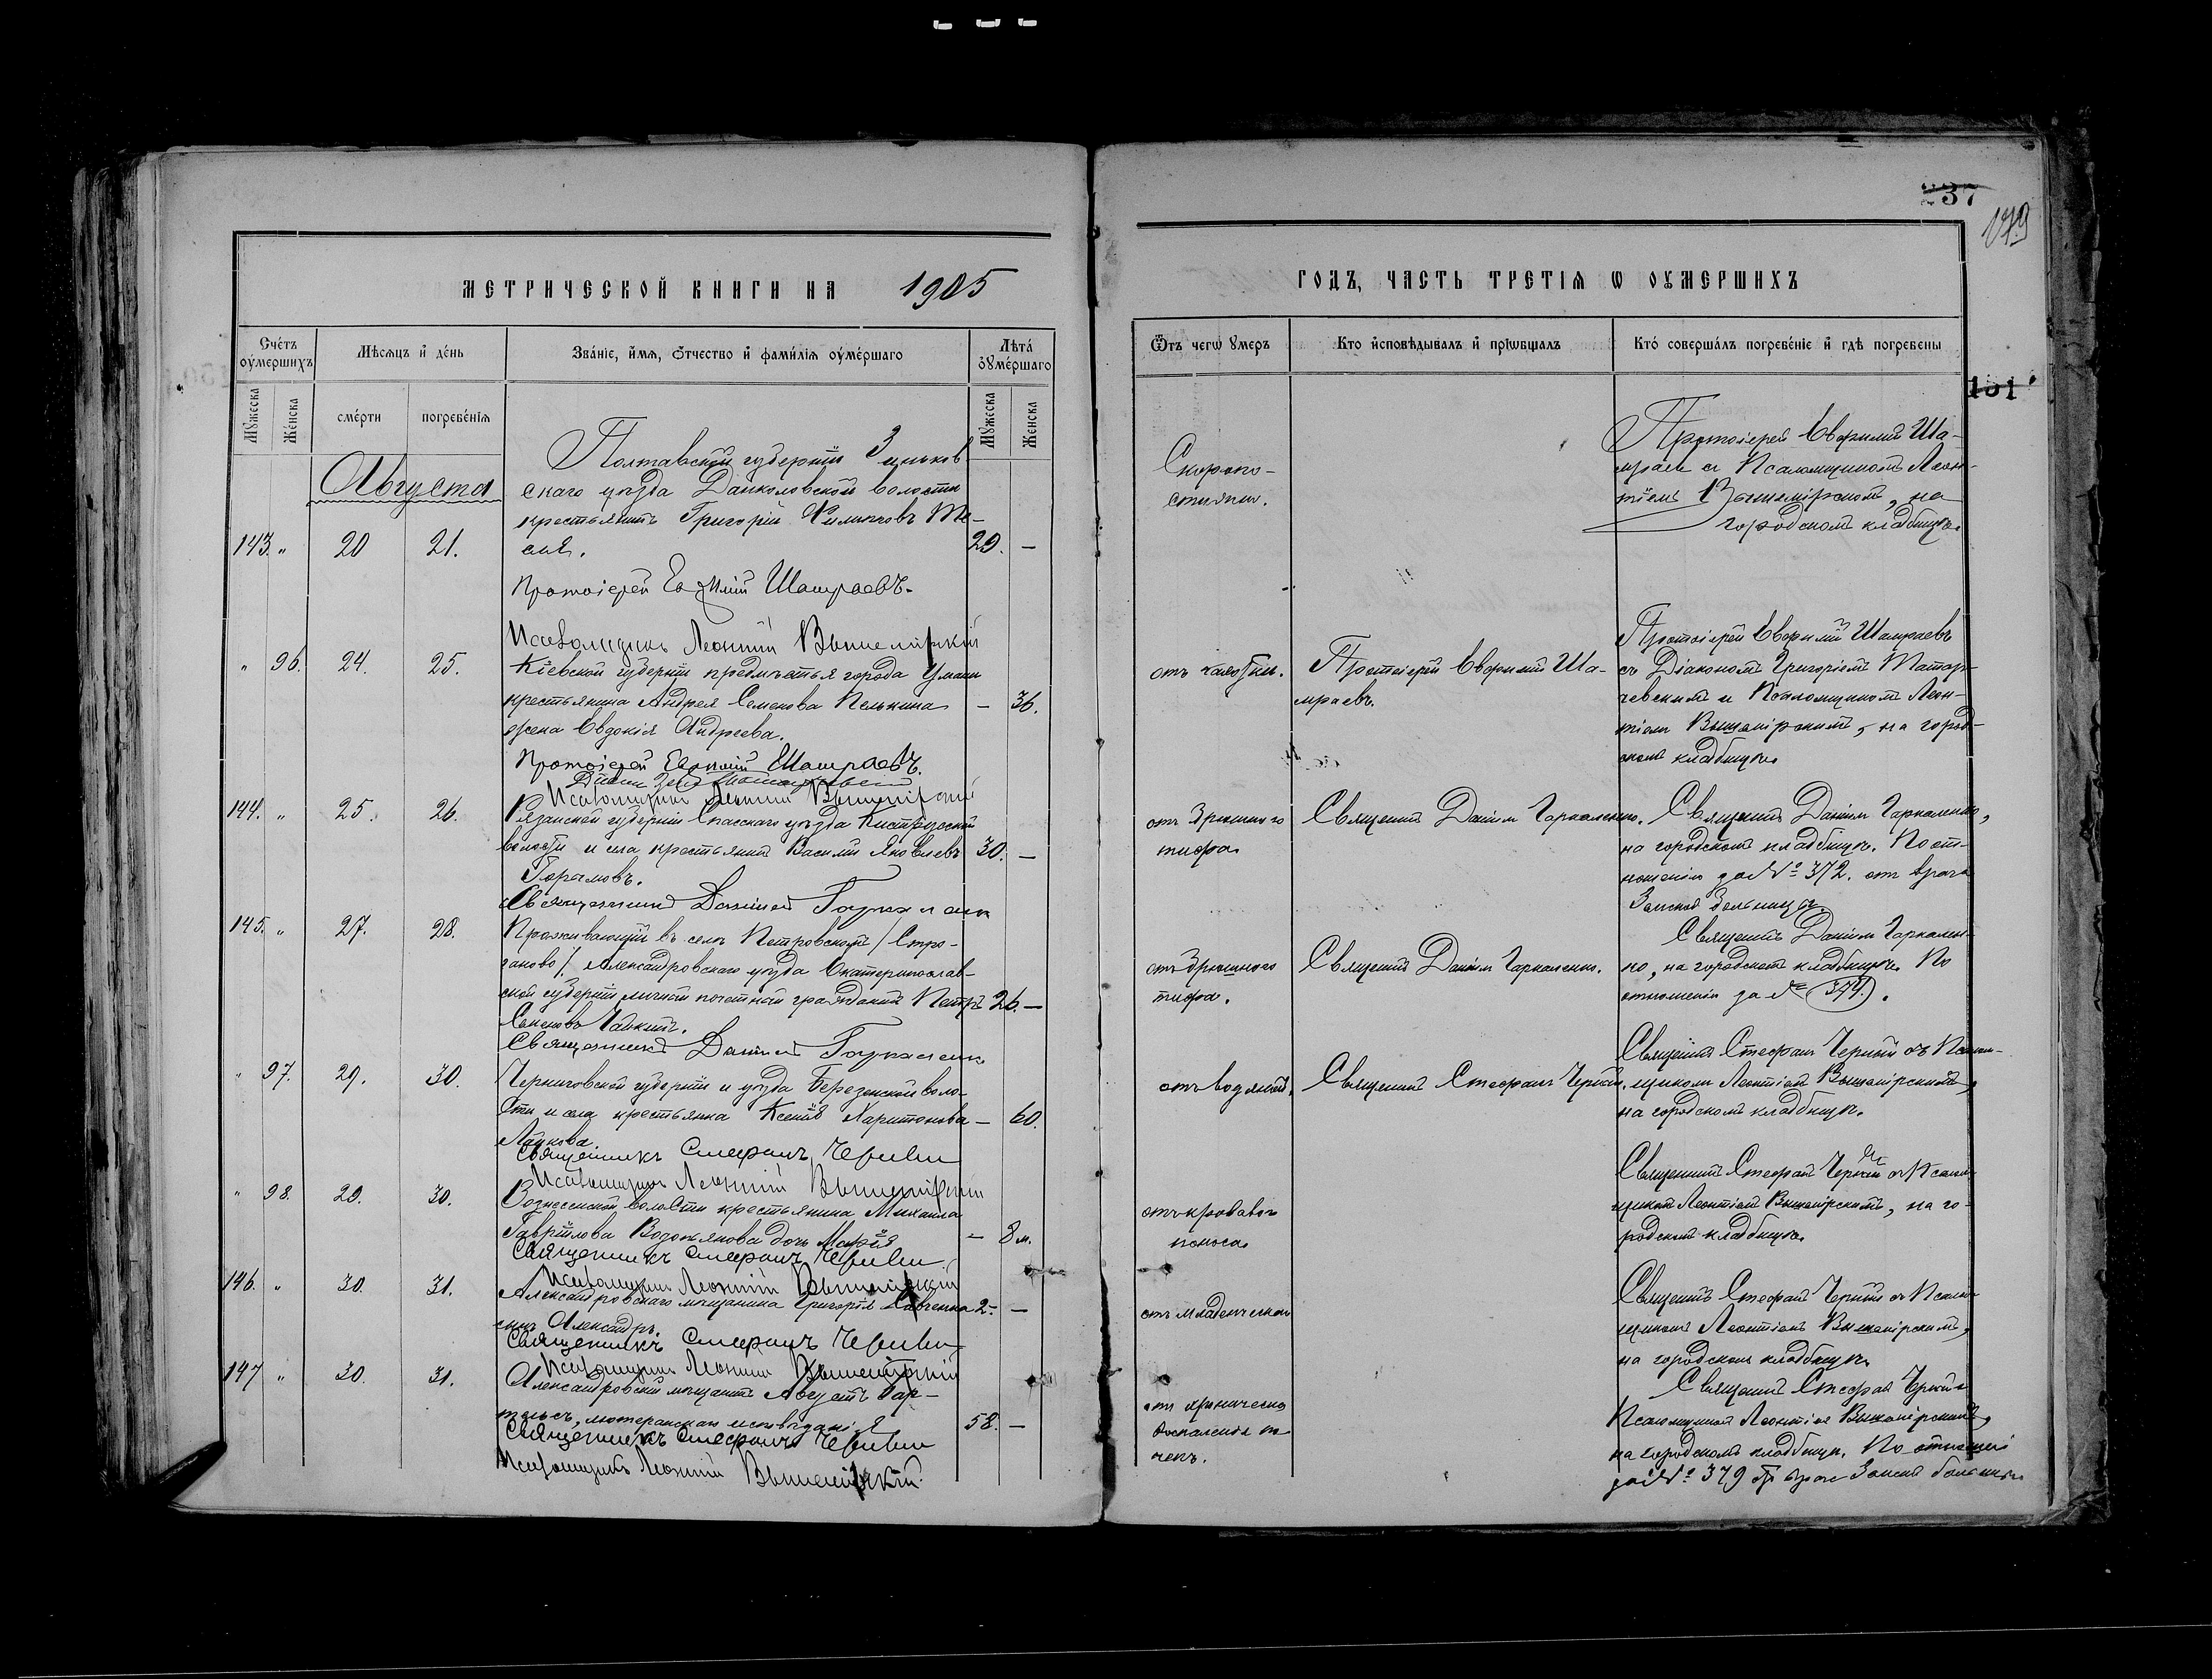 37
179
МЕТРИЧЕСКОЙ КНИГИ НА 1905
ГОДЪ, ЧАСТЬ ТРЕТІѦ Ѡ ОУМЕРШИХЪ
Счетъ оумершихъ
Мѣсѧцъ и день
Званіе, имѧ, Ѿчество и фамиліѧ оумершаго
Лѣта оумершаго
Мужеска
Женска
смерти
погребеніѧ
Мужеска
Женска
Ѿтъ чегѡ умеръ
Кто исповѣдывалъ и пріѡбщалъ
Кто совершалъ погребеніе и гдѣ погребены
151
Августа
143. " 20 21.
Полтавской губерніи Зеньков-
скаго уѣзда
волости
крестьянинъ Григорій Филиповъ Те-
29. —
Скоропо-
стижно.
Протоіерей Евфимій Ша-
мраевъ съ Псаломщикомъ Леон-
тіемъ Вышемірскимъ, на
городскомъ кладбищѣ.
Протоіерей Евфимій Шамраевъ.
Псаломщикъ Леонтій Вышемірскій
" 96. 24. 25.
Кіевской губерніи предмѣстья города Умани
крестьянина Андрея Семенова
жена Евдокія Андреева.
— 36.
отъ чахотки.
Протоіерей Евфимій Ша-
мраевъ.
Протоіерей Евфимій Шамраевъ
съ Діакономъ Григоріемъ
и Псаломщикомъ Леон-
тіемъ Вышемірскимъ, на город-
скомъ кладбищѣ.
Протоіерей Евфимій Шамраевъ.
Псаломщикъ Леонтій Вышемірскій
144. " 25. 26.
Рязанской губерніи Спасскаго уѣзда
волости и села крестьянинъ Василій Яковлевъ
30. —
отъ брюшного
тифа.
Священникъ Даніилъ Гаркаленко.
Священникъ Даніилъ Гаркаленко,
на городскомъ кладбищѣ. По от-
ношенію за № 372. отъ врача
Земской больницы.
Священникъ Даніилъ Гаркаленко
145. " 27. 28.
Проживающій въ селѣ Петровскомъ / Стро-
ганово /, Александровскаго уѣзда Екатеринослав-
ской губерніи личный почетный гражданинъ Петръ
Семеновъ
26. —
отъ брюшного
тифа.
Священникъ Даніилъ Гаркаленко.
Священникъ Даніилъ Гаркален-
ко, на городскомъ кладбищѣ. По
отношенію за №
Священникъ Даніилъ Гаркаленко
" 97. 29. 30.
Черниговской губерніи и уѣзда Березенской воло-
сти и села крестьянка Ксенія Харитонова
— 60.
отъ водянки.
Священникъ Стефанъ
Священникъ Стефанъ съ Псалом-
щикомъ Леонтіемъ Вышемірскимъ,
на городскомъ кладбищѣ.
Священникъ Стефанъ
Псаломщикъ Леонтій Вышемірскій
" 98. 29. 30.
Вознесенской волости крестьянина Михаила
Гаврілова Водопьянова дочь Марія
— 8 м.
отъ кроваваго
поноса.
Священникъ Стефанъ съ Псалом-
щикомъ Леонтіемъ Вышемірскимъ, на го-
родскомъ кладбищѣ.
Священникъ Стефанъ
Псаломщикъ Леонтій Вышемірскій
146. " 30. 31.
Александровскаго мѣщанина Григорія Савченка
сынъ Александръ.
2. —
отъ младенческой
Священникъ Стефанъ съ Псалом-
щикомъ Леонтіемъ Вышемірскимъ,
на городскомъ кладбищѣ.
Священникъ Стефанъ
Псаломщикъ Леонтій Вышемірскій
147 " 30. 31.
Александровскій мѣщанинъ Августъ Гар-
лютеранскаго исповѣданія
58. —
отъ хроническаго
воспаленія по-
чекъ.
Священникъ Стефанъ
Псаломщикомъ Леонтіемъ Вышемірскимъ,
на городскомъ кладбищѣ. По отношенію
за № 379 отъ врача Земской больницы
Священникъ Стефанъ
Псаломщикъ Леонтій Вышемірскій.